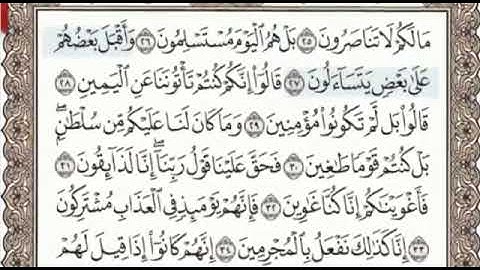 مَا لَكُمْ لَا تَنَاصَرُونَ ٢٥ بَلْ هُمُ ٱلْيَوْمَ مُسْتَسْلِمُونَ ٢٦ وَأَقْبَلَ بَعْضُهُمْ
عَلَىٰ بَعْضٍ يَتَسَآءَلُونَ ٢٧ قَالُوٓا۟ إِنَّكُمْ كُنتُمْ تَأْتُونَنَا عَنِ ٱلْيَمِينِ ٢٨
قَالُوا۟ بَل لَّمْ تَكُونُوا۟ مُؤْمِنِينَ ٢٩ وَمَا كَانَ لَنَا عَلَيْكُم مِّن سُلْطَٰنٍۭ ۖ
بَلْ كُنتُمْ قَوْمًا طَٰغِينَ ٣٠ فَحَقَّ عَلَيْنَا قَوْلُ رَبِّنَآ ۖ إِنَّا لَذَآئِقُونَ ٣١
فَأَغْوَيْنَٰكُمْ إِنَّا كُنَّا غَٰوِينَ ٣٢ فَإِنَّهُمْ يَوْمَئِذٍ فِى ٱلْعَذَابِ مُشْتَرِكُونَ
٣٣ إِنَّا كَذَٰلِكَ نَفْعَلُ بِٱلْمُجْرِمِينَ ٣٤ إِنَّهُمْ كَانُوٓا۟ إِذَا قِيلَ لَهُمْ